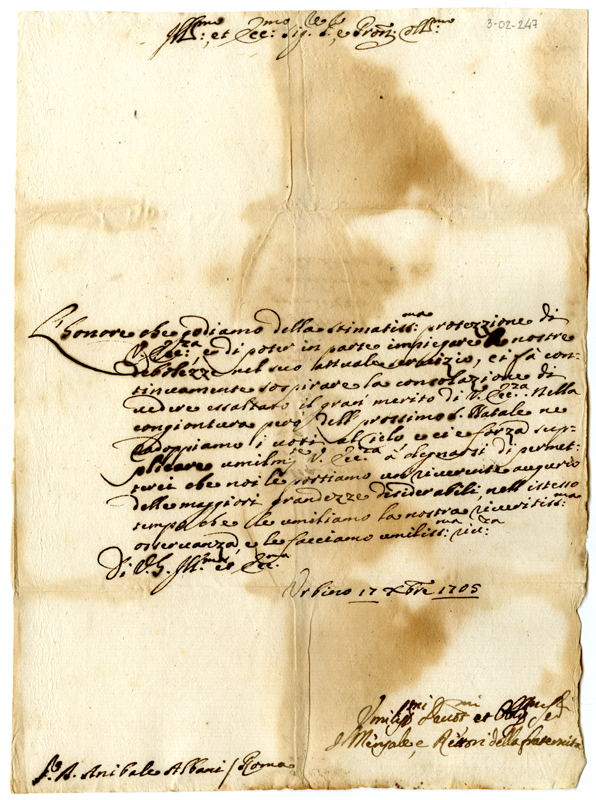 3-02-247
Ill:mo et Ecc:mo Sig.re e Pron: Coll:mo
L'honore che godiamo della stimatiss:ma protezzione di
V. Ecc:za e di poter in parte impiegare le nostre
debolezze nel suo attuale servizio, ci fà con-
tinuamente sospirare la consolazione di
vedere essaltato il gran merito di V. Ecc:za. Nella
congiontura però dell prossimo S. Natale ne
radoppiamo i voti al cielo e ci è forza sup-
plicare umilm:te V. Ecc:za à degnarsi di permet-
terci che noi le portiamo un riverente augurio
delle maggiori grandezze desiderabili nell istesso
tempo che le umiliamo la nostra riveritiss:ma
osservanza e le facciamo umiliss:ma riv:za
Di V. S. Ill:ma et Ecc:ma
Urbino 17 Xbre 1705
Umiliss:mi Devot:mi et Obblig:
Mensale, e Rettori della fraternita
S.r D. Anibale Albani / Roma